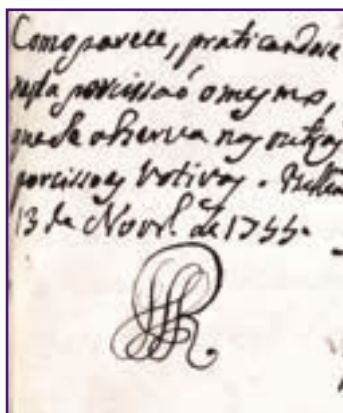 Como parece, praticandose
nesta porcissaõ o mesmo,
que se observa nas outras
porcissoes votivas. Bellem
13 de Novr.º de 1755.